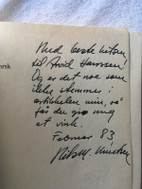 rsk
Med beste hilsen
til Arvid Hanssen!
Og er det noe som
ikke stemmer i
artikkelen min, så
får du gi meg
et vink.
Februar 83